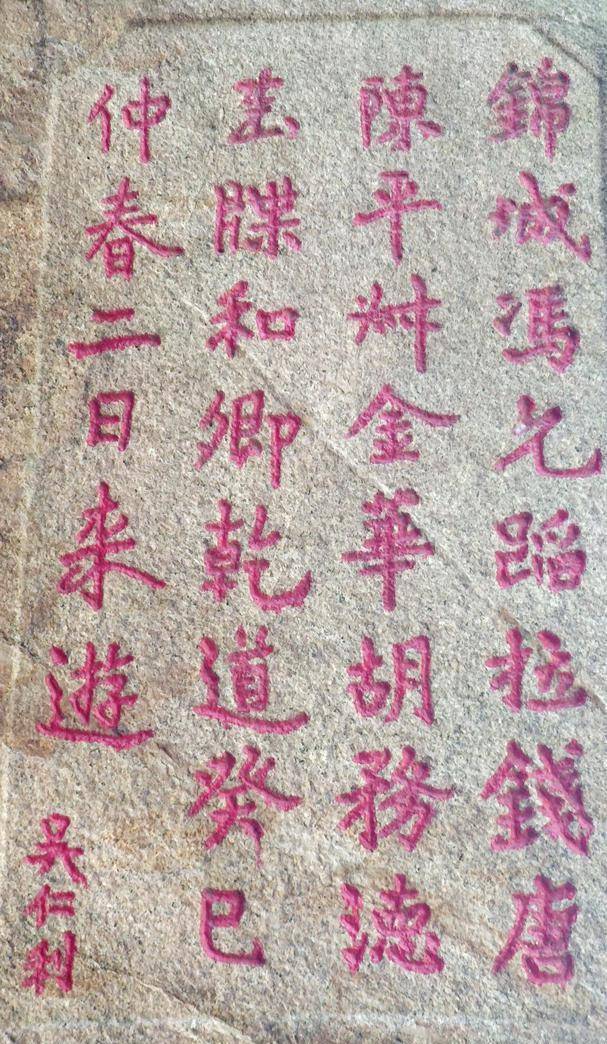 錦城馮允蹈拉錢唐
陳平艸金華胡務德
玉牒和卿乾道癸巳
仲春二日来遊
吳仁利